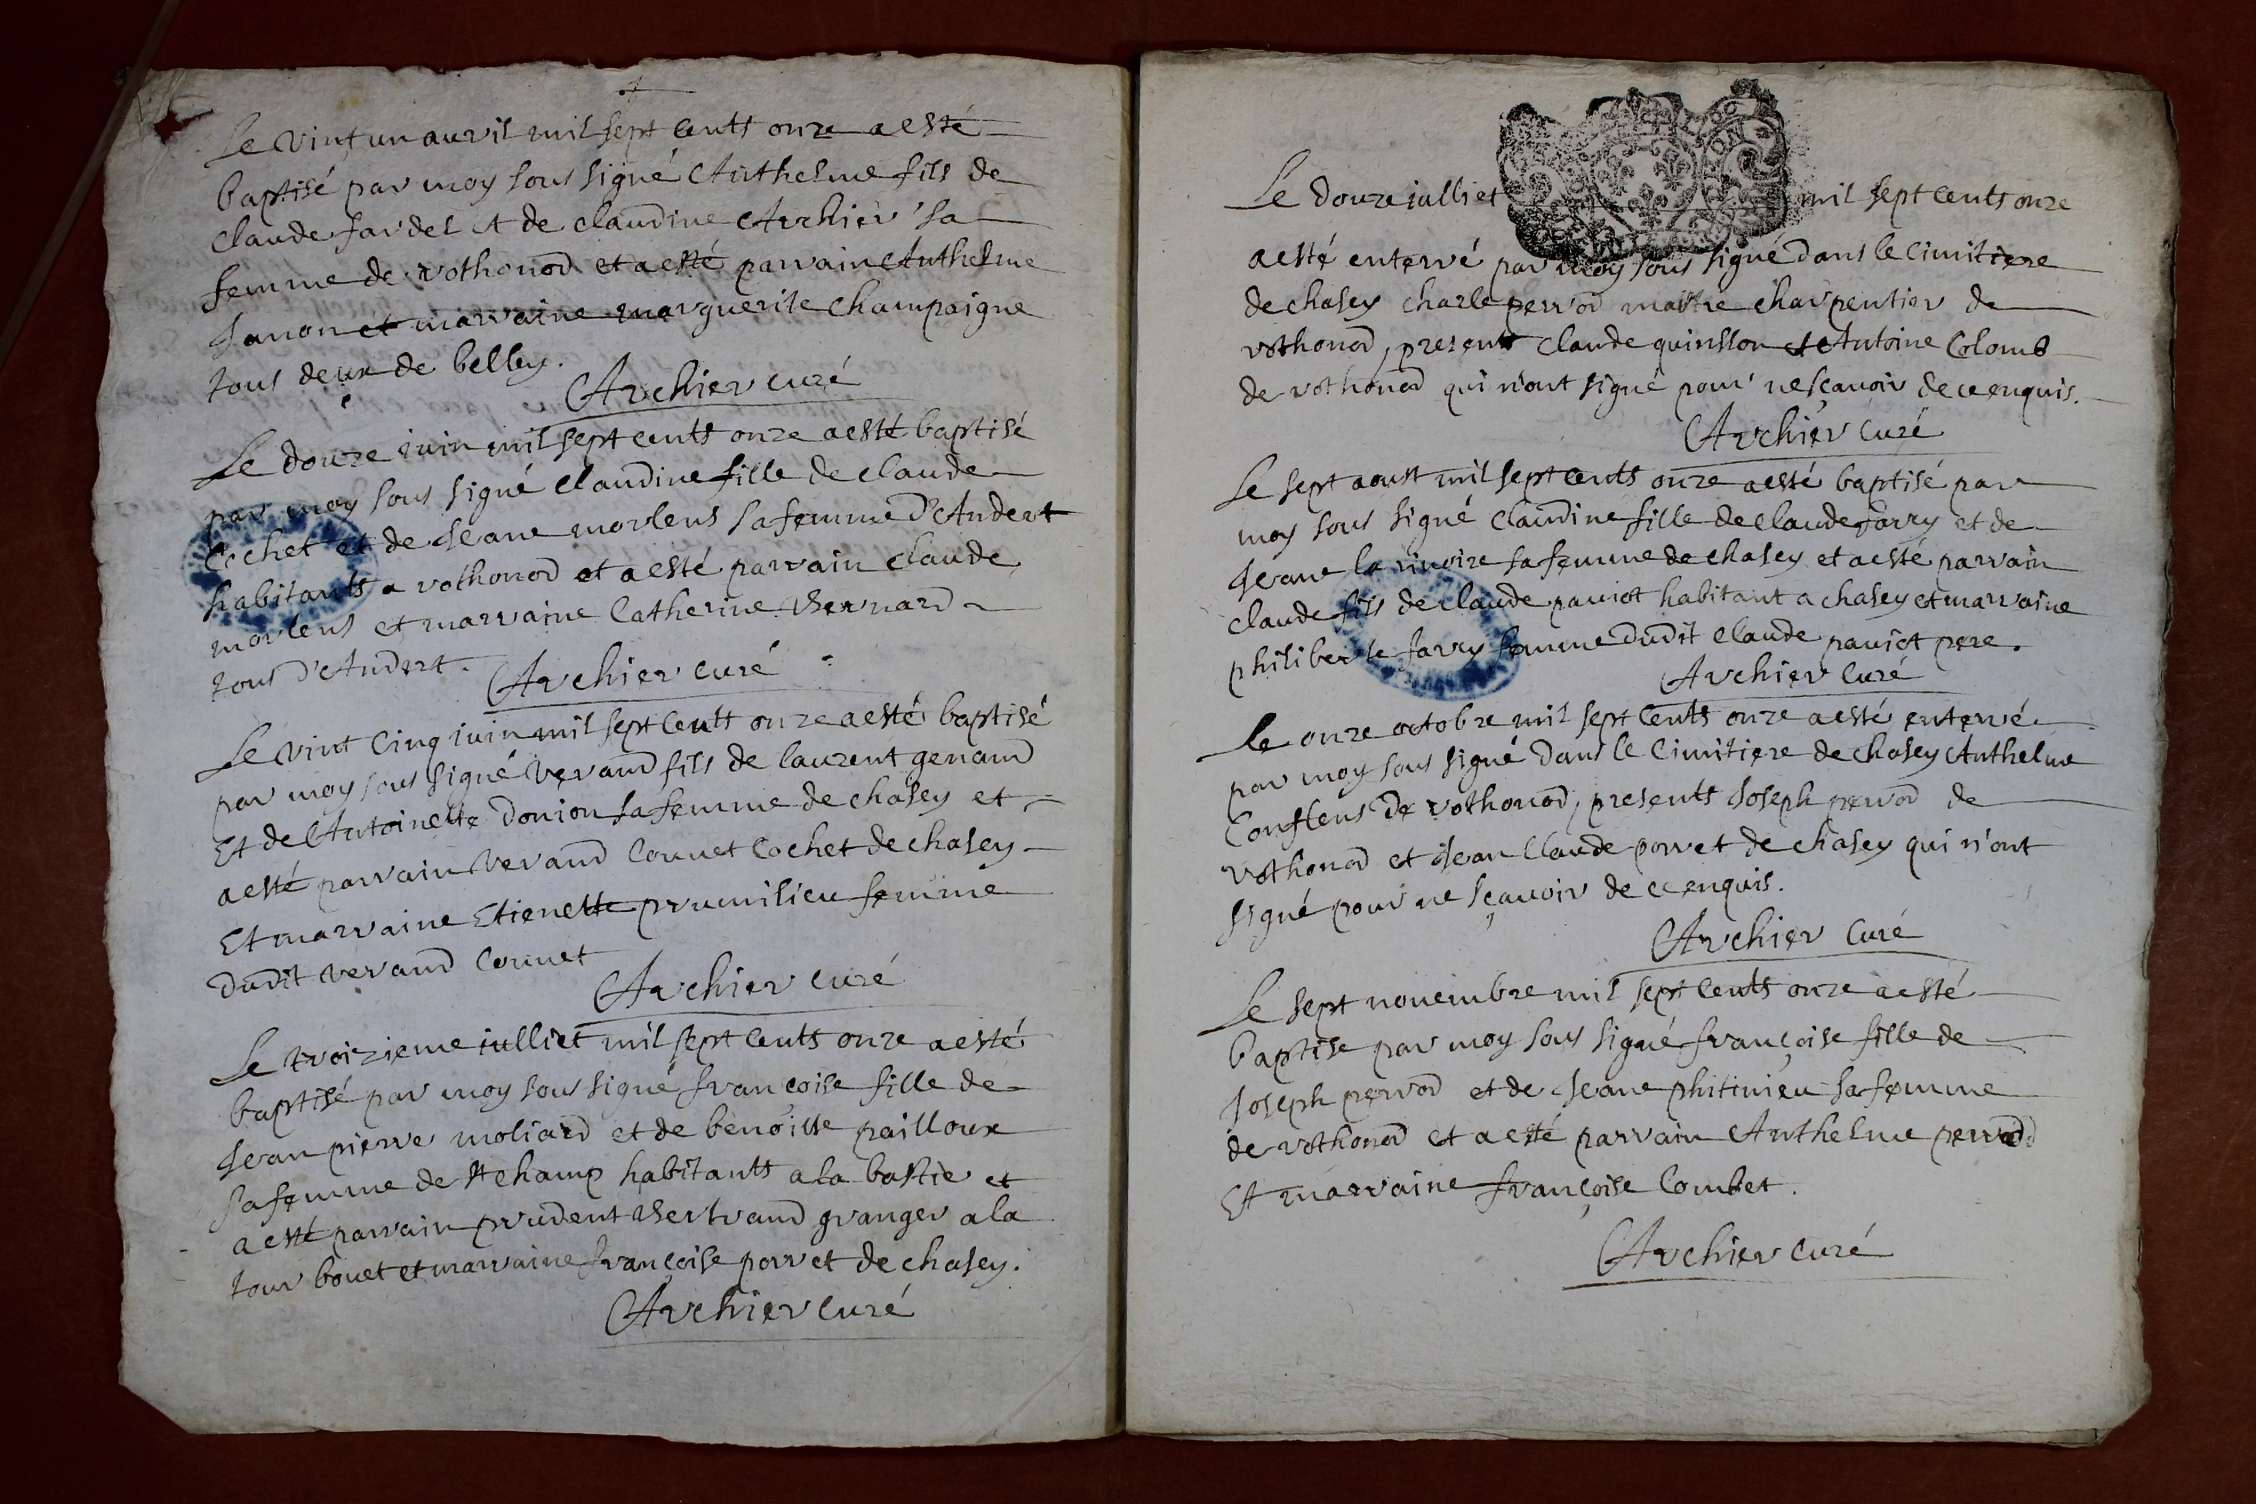 Le vint un auvril mil sept cents onze a esté
baptisé par moy sous signé Anthelme fils de
claude fardel et de claudine Archier sa
femme de vothonod et a esté parrain Anthelme
Janon et marraine marguerite champaigne
tous deux de belley.
Archier curé
Le douze iuin mil sept cents onze a esté baptisé
par moy sous signé claudine fille de claude
Cochet et de Jeane morlens sa femme d'Andert
habitants a vothonod et a esté parrain claude
morlens et marraine Catherine Bernard
tous d'Andert.
Archier curé
Le vint cinq iuin mil sept cents onze a esté baptisé
par moy sous signé verand fils de laurent genand
Et de Antoinette donion sa femme de chasey et
a esté parrain verand Cornet Cochet de chasey
Et marraine Etienette prumilieu femme
dudit verand Cornet
Archier curé
Le troizieme iulliet mil sept cents onze a esté
baptisé par moy sous signé françoise fille de
Jean pierre moliard et de benoitte pailloux
sa femme de st champ habitants a la bastie et
a esté parrain prudent Bertrand granger a la
tour bouet et marraine françoise porret de chasey.
Archier curé
Le douze iulliet mil sept cents onze
a esté enterré par moy sous signé dans le Cimitiere
de chasey charle perrod maitre charpentier de
vothonod, presents claude quinsson et Antoine Colomb
de vothonod qui n'ont signé pour ne sçavoir de ce enquis.
Archier curé
Le sept aoust mil sept cents onze a esté baptisé par
moy sous signé Claudine fille de claude Jarry et de
Jeane la rivoire sa femme de chasey et a esté parrain
claude fils de claude paviot habitant a chasey et marraine
philiberte Jarry femme dudit claude paviot pere.
Archier Curé
Le onze octobre mil sept Cents onze a esté enterré
par moy sous signé dans le Cimitiere de chasey Anthelme
Conflens de vothonod, presents Joseph perrod de
vothonod et Jean Claude porret de chasey qui n'ont
signé pour ne sçavoir de ce enquis.
Archier Curé
Le sept novembre mil sept Cents onze a esté
baptise par moy sous signé françoise fille de
Joseph perrod et de Jeane phitinieu sa femme
de vothonod et a esté parrain Anthelme perrod
Et marraine françoise Combet.
Archier curé